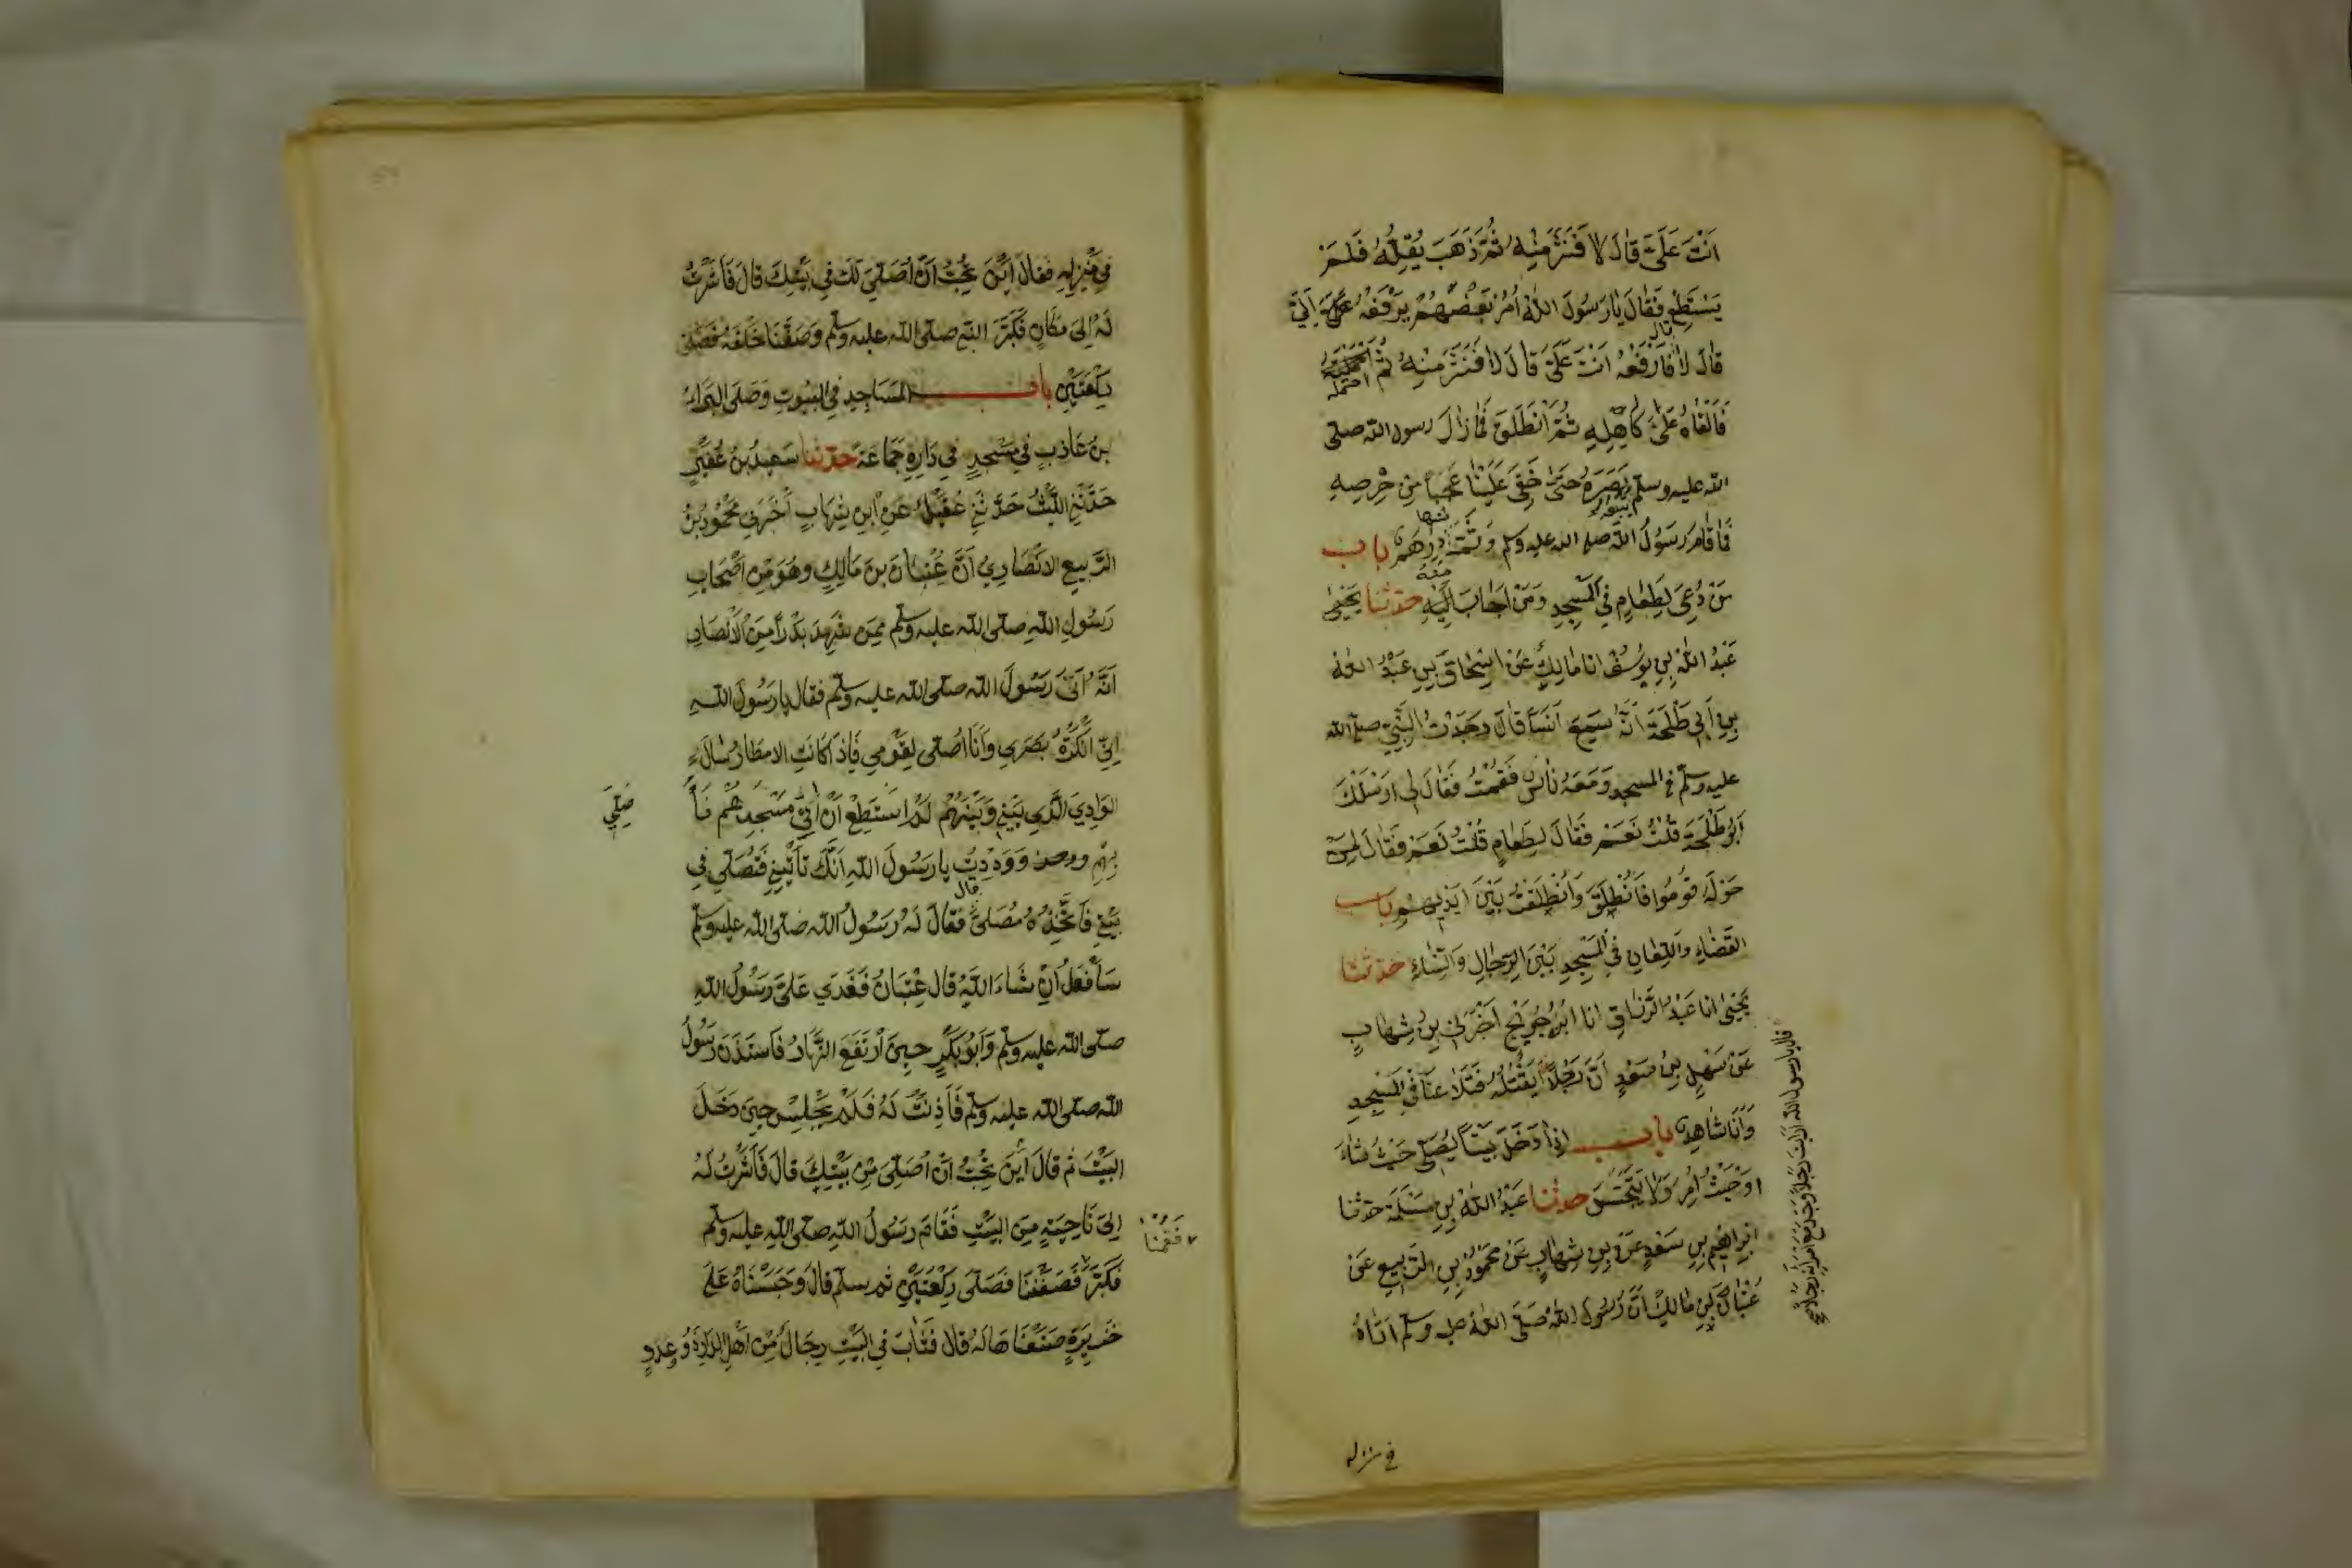 اَنْتَ عَلَيَّ قَالَ لَا فَنَثَرَ مِنْهُ ثُمَّ ذَهَبَ يُقِلُّهُ فَلَمْ
يَسْتَطِعْ فَقَالَ يَا رَسُولَ اللهِ اُمُرْ بَعْضَهُمْ يَرْفَعْهُ اِلَيَّ
قَالَ لَا قال فَارْفَعْهُ اَنْتَ عَلَيَّ قَالَ لَا فَنَثَرَ مِنْهُ ثُمَّ احتمله
فَاَلْقَاهُ عَلَى كَاهِلِهِ ثُمَّ انْطَلَقَ فَمَا زَالَ رسول الله صلى
الله عليه وسلم يتبعه بَصَرَهُ حَتَّى خَفِيَ عَلَيْنَا عَجَباً مِنْ حِرْصِهِ
فَمَا قَامَ رَسُولُ اللهِ صلى الله عليه وسلم وَثَمَّتَ منها دِرْهَمٌ باب
مَنْ دُعِيَ لِطَعَامٍ فِي الْمَسْجِدِ وَمَنْ اَجَابَ اِلَيْهِ منه حَدَّثَنَا يَحْيَى
عَبْدُ اللهِ بْنِ يُوسُفَ انا مَالِكٌ عَنْ اِسْحَاقَ بْنِ عَبْدُ اللهِ
بْنِ اَبِي طَلْحَةَ اَنَّهُ سَمِعَ اَنَسًا قَالَ وَجَدْتُ النَّبِيَّ صلى الله
عليه وسلم في المسجد وَمَعَهُ نَاسٌ فَقُمْتُ فَقَالَ لِي اَرْسَلَكَ
اَبُو طَلْحَةَ قُلْتُ نَعَمْ فَقَالَ لِطَعَامٍ قُلْتُ نَعَمْ فَقَالَ لِمَنْ
حَوْلَهُ قُومُوا فَانْطَلَقَ وَانْطَلَقْتُ بَيْنَ اَيْدِيهِمْ باب
القَضَاءِ وَاللِّعَانِ فِي الْمَسْجِدِ بَيْنَ الرِّجَالِ وَالنِّسَاءِ حَدَّثَنَا
يَحْيَى انا عَبْدُ الرَّزَّاقِ انا ابْنُ جُرَيْجٍ اَخْبَرَنِي بْنُ شِهَابٍ
عَنْ سَهْلِ بْنِ سَعْدٍ اَنَّ رَجُلًا اَيَقْتُلُهُ فَتَلَاعَنَا فِي الْمَسْجِدِ
قال يا رسول الله ارايت رجلا وجد مع امراته رجلا
وَاَنَا شَاهِدٌ باب اِذَا دَخَلَ بَيْتاً يُصَلِّي حَيْثُ شَاءَ
اَوْ حَيْثُ اُمِرَ وَلَا يَتَجَسَّسُ حدثنا عَبْدُ اللهِ بْنِ مَسْلَمَةَ حَدَّثنا
اِبْرَاهِيمُ بْنِ سَعْدٍ عَنْ بْنِ شِهَابٍ عَنْ مَحْمُودِ بْنِ الرَّبِيعِ عَنْ
عُتْبَانَ بْنِ مَالِكٍ اَنَّ رَسُولَ اللهِ صَلَّى اللهُ عليه وسلم اَتَاهُ
في منزله
فِي مَنْزِلِهِ فَقَالَ اَيْنَ تُحِبُّ اَنْ اُصَلِّيَ لَكَ فِي بَيْتِكَ قَالَ فَاَشَرْتُ
لَهُ اِلَى مَكَانٍ فَكَبَّرَ النبي صلى الله عليه وسلم وَصَفَّنَا خَلْفَهُ فَصَلَّى
رَكْعَتَيْنِ باب المَسَاجِدِ فِي البُيُوتِ وَصَلَّى البَرَاءُ
بْنُ عَازِبٍ فِي مَسْجِدٍ فِي دَارِهِ جَمَاعَةً حَدَّثَنَا سَعِيدُ بْنُ عُفَيْرٍ
حَدَّثَنِي اللَّيْثُ حَدَّثَنِي عُقَيْلٌ عَنِ ابْنِ شِهَابٍ اَخْبَرَنِي مَحْمُودُ بْنُ
الرَّبِيعِ الاَنْصَارِيُّ اَنَّ عُتْبَانَ بْنَ مَالِكٍ وَهُوَ مِنْ اَصْحَابِ
رَسُولِ اللهِ صلى الله عليه وسلم مِمَّنْ شَهِدَ بَدْراً مِنَ الْاَنْصَارِ
اَنَّهُ اَتَى رَسُولَ الله صلى الله عليه وسلم فقال يا رَسُولَ اللهِ
اِنِّي اَنْكَرْتُ بَصَرِي وَاَنَا اُصَلِّي لِقَوْمِي فَاِذَا كَانَتِ الامطارُ سَالَ
الوَادِيَ الَّذِي بَيْنِي وَبَيْنَهُمْ لَمْ اَسْتَطِعْ اَنْ اٰتِيَ مَسْجِدَهُمْ فَاُ
صَلِّيَ
بِهِمْ وَوَدِدْتُ يا رَسُولَ اللهِ اَنَّكَ تَأْتِينِي فَتُصَلِّي فِي
بَيْتِي فَاَتَّخِذُهُ مُصَلًّى قال فَقَالَ لَهُ رَسُولُ الله صلى الله عليه وسلم
سَاَفْعَلُ اِنْ شَاءَ اللهُ قَالَ عُتْبَانُ فَغَدَي عَلَيَّ رَسُولُ اللهِ
صلى الله عليه وسلم وَاَبُو بَكْرٍ حِينَ ارْتَفَعَ النَّهَارُ فَاسْتَذَنَ رَسُولُ
الله صلى الله عليه وسلم فَاَذِنْتُ لَهُ فَلَمْ يَجْلِسْ حِينَ دَخَلَ
البَيْتَ ثُمَّ قَالَ اَيْنَ تُحِبُّ اَنْ اُصَلِّيَ مِنْ بَيْتِكَ قَالَ فَاَشَرْتُ لَهُ
اِلَى نَاحِيَةٍ مِنَ البَيْتِ فَقَامَ رَسُولُ اللهِ صلى الله عليه وسلم
فَكَبَّرَ فَقُمْنَا فَصَفَفْنَا فَصَلَّى رَكْعَتَيْنِ ثم سلم قَالَ وَحَبَسْنَاهُ عَلَى
خَزِيرَةٍ صَنَعْنَاهَا لَهُ قَالَ فَثَابَ فِي البَيْتِ رِجَالٌ مِنْ اَهْلِ الدَّارِ ذَوُو عَدَدٍ